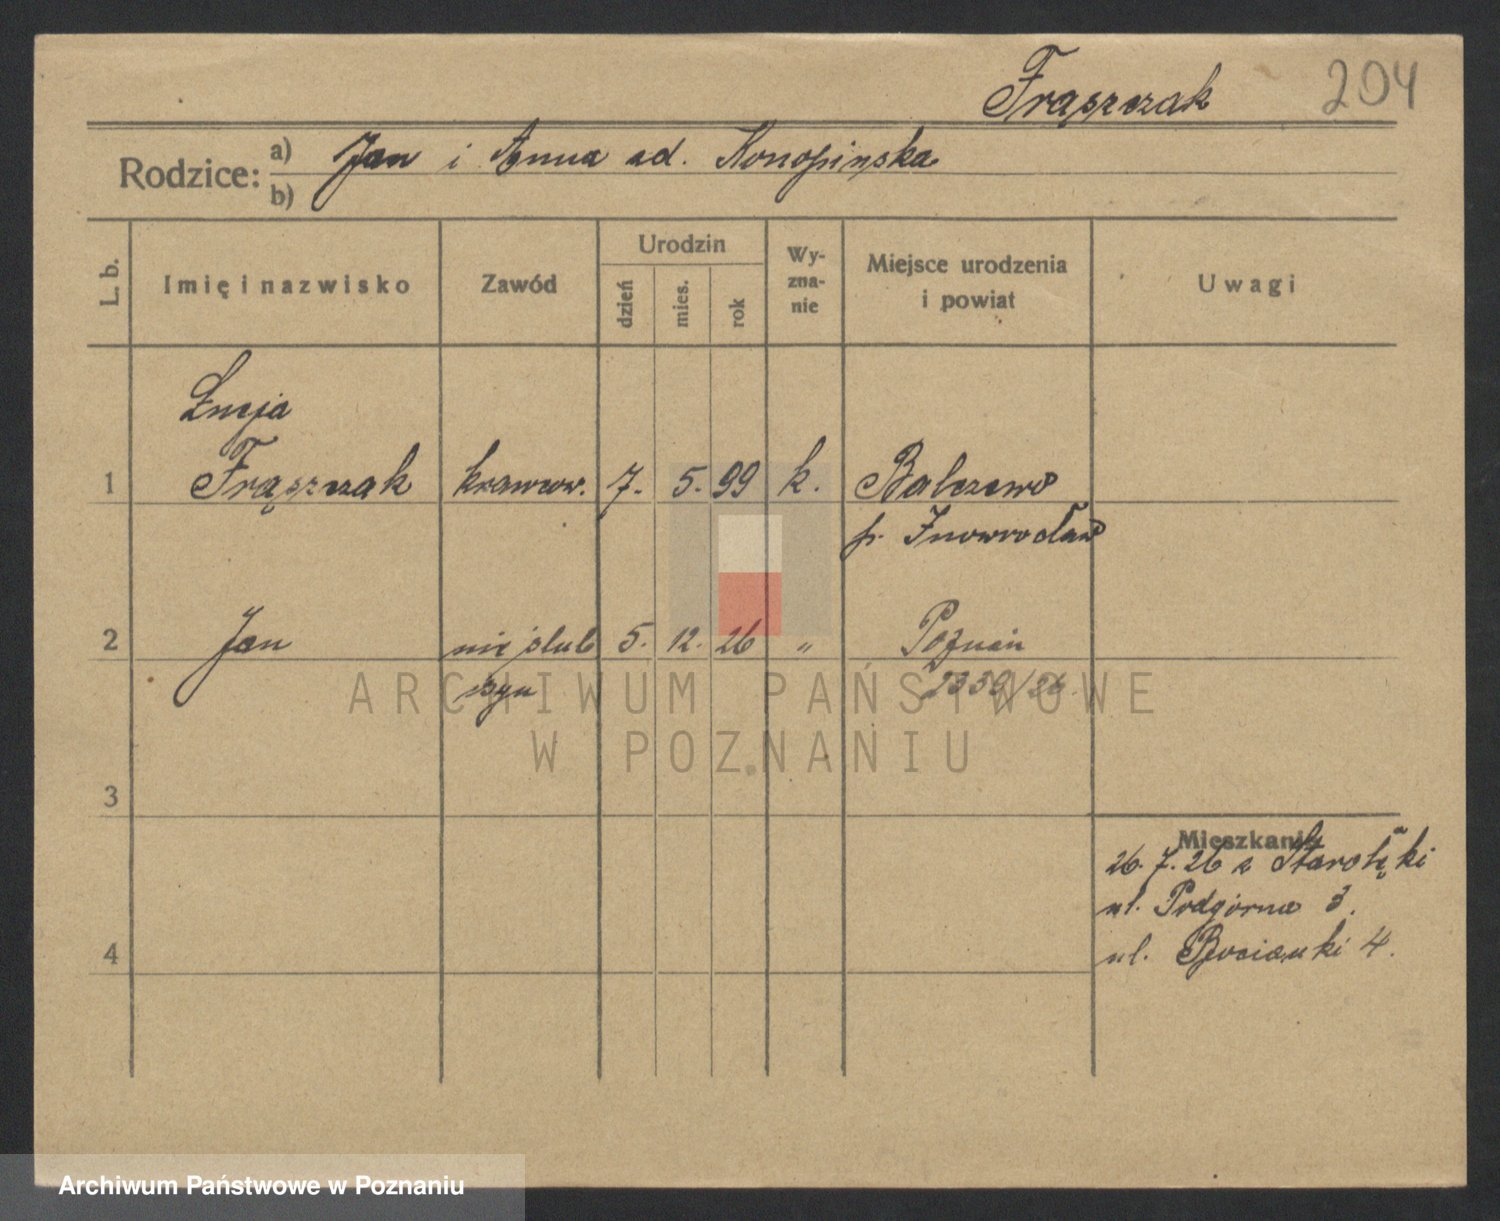 Frąszczak 204
Rodzice: a) Jan i Anna ad. Konopińska
b)
L. b. Imię i nazwisko Zawód Urodzin dzień mies. rok Wyznanie Miejsce urodzenia i powiat Uwagi
Łucja
1 Frąszczak krawcow. 7. 5. 99 k. Balczewo
p. Inowrocław
2 Jan nieślub 5. 12. 26 " Poznań
syn
ARCHIWUM PAŃSTWOWE
W POZNANIU
3
Mieszkanie
26. 7. 26 z Starołęki
ul. Podgórna 3.
4 ul. Bocianki 4.
Archiwum Państwowe w Poznaniu